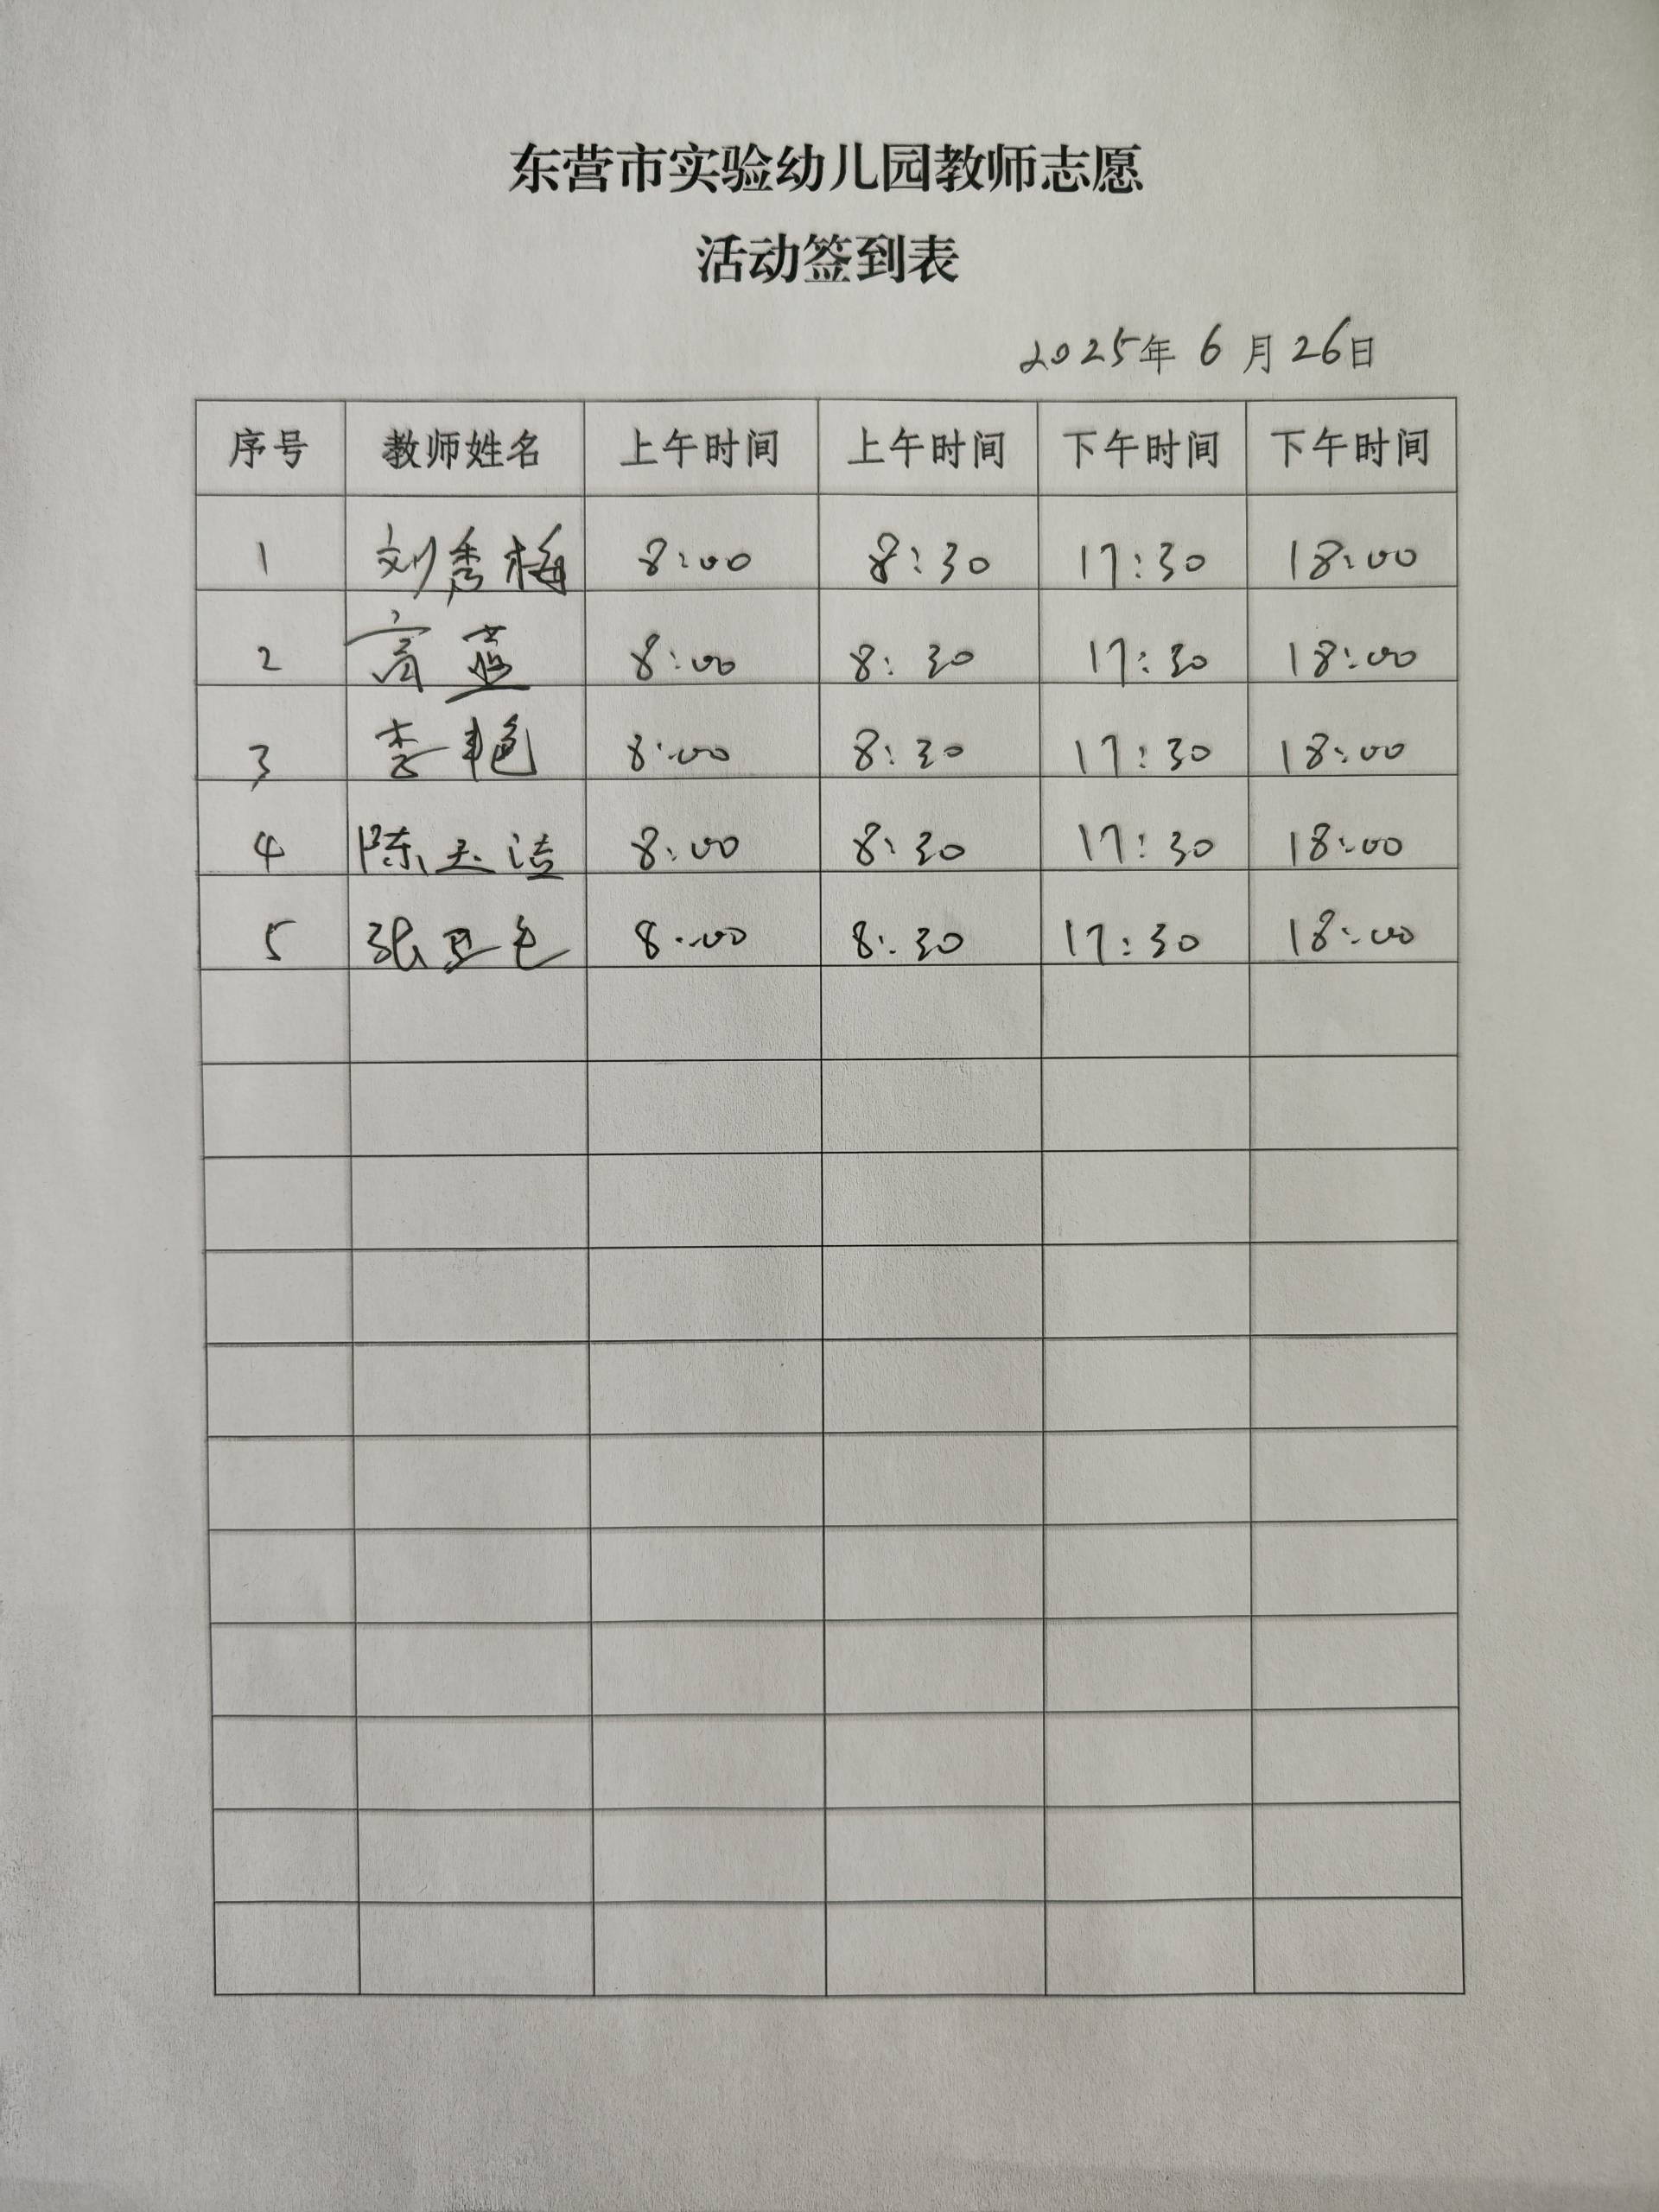 东营市实验幼儿园教师志愿
活动签到表
2025年 6 月 26日
序号 教师姓名 上午时间 上午时间 下午时间 下午时间
1 刘秀梅 8:00 8:30 17:30 18:00
2 高蓝 8:00 8:30 17:30 18:00
3 李艳 8:00 8:30 17:30 18:00
4 陈玉洁 8:00 8:30 17:30 18:00
5 张 8:00 8:30 17:30 18:00